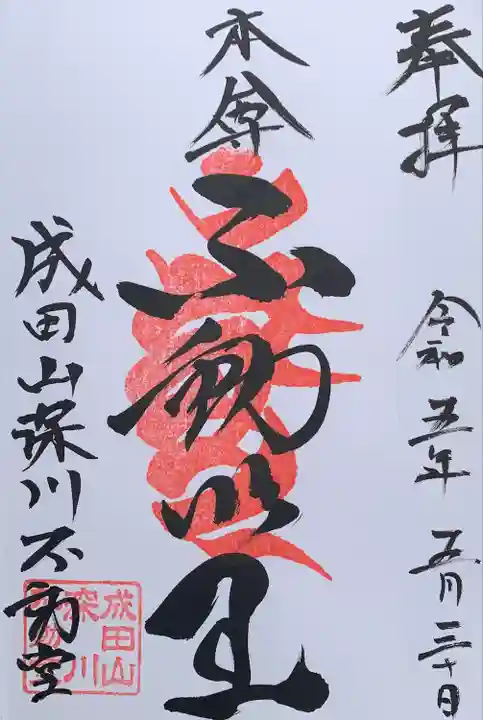 奉拝
令和五年五月三十日
本尊
不動明王
成田山深川不動堂
成田山
深川
不動堂